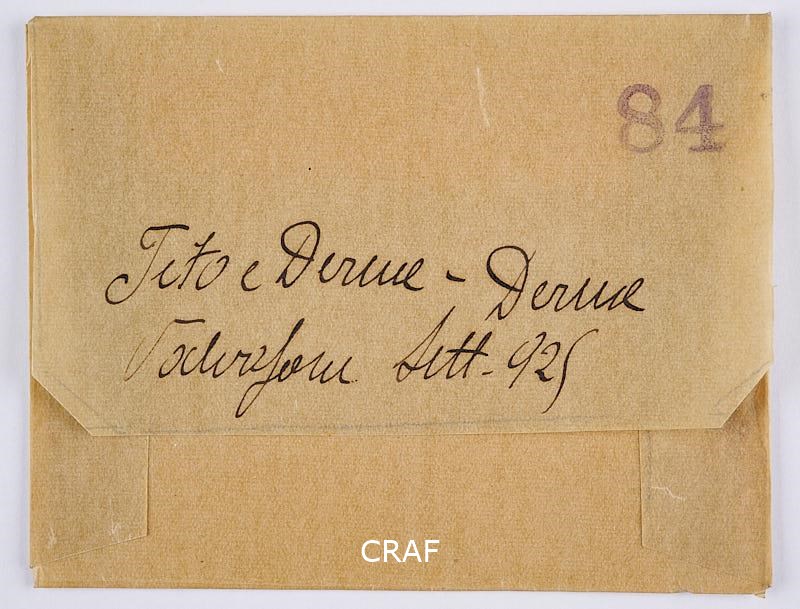 84
Tito e Derna - Derna
Valvasone Sett. 925
CRAF